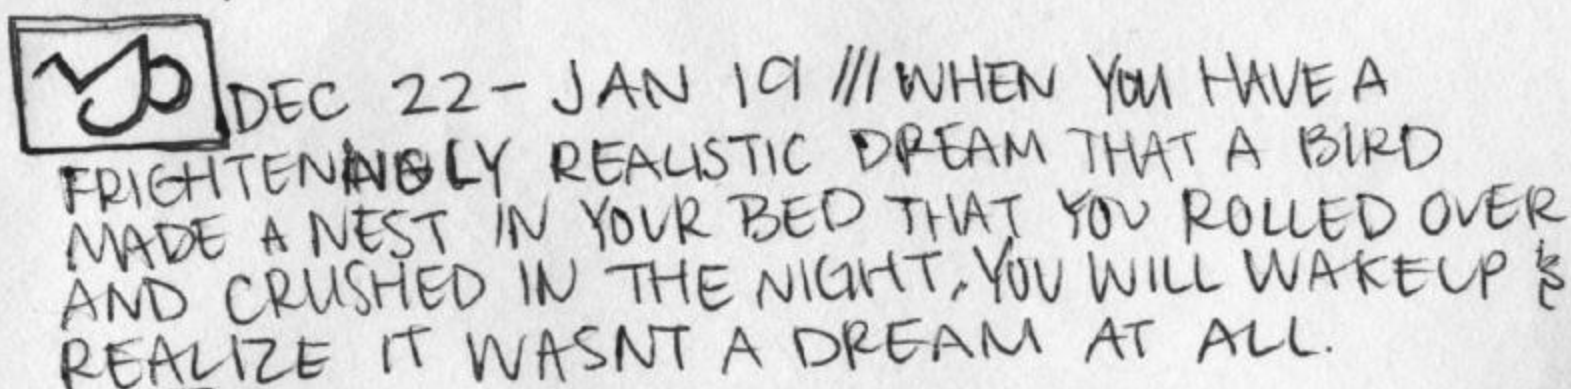 DEC 22 - JAN 19 /// WHEN YOU HAVE A
FRIGHTENINGLY REALISTIC DREAM THAT A BIRD
MADE A NEST IN YOUR BED THAT YOU ROLLED OVER
AND CRUSHED IN THE NIGHT, YOU WILL WAKE UP &
REALIZE IT WASNT A DREAM AT ALL.